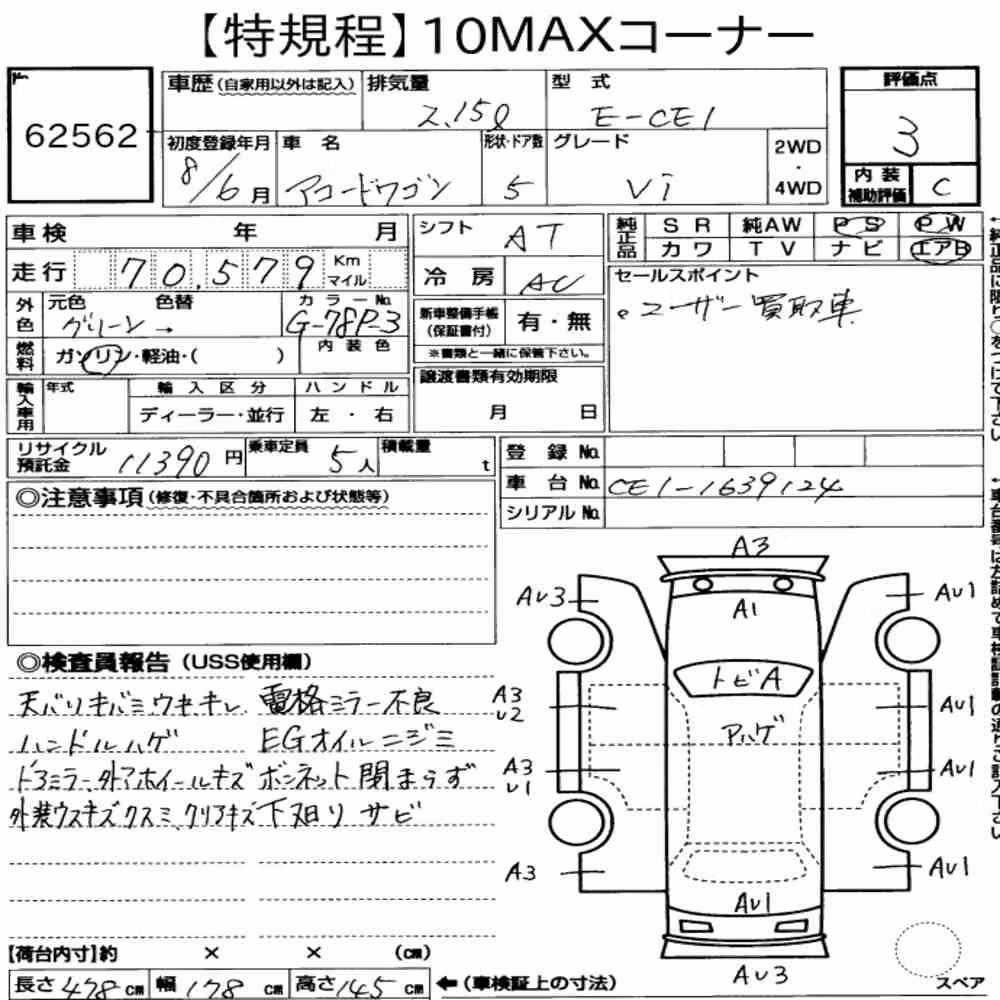 【特規程】10MAXコーナー
62562
車歴(自家用以外は記入)
排気量
2.15ℓ
型式
E-CE1
評価点
3
初度登録年月
8/6月
車名
アコードワゴン
形状・ドア数
5
グレード
Vi
2WD
・
4WD
内装
補助評価
C
車検 年 月
シフト
AT
純正品
SR 純AW PS PW
カワ TV ナビ エアB
走行 70,579 Km
マイル
冷房
AC
セールスポイント
。ユーザー買取車
外色
元色 色替 カラーNo.
グリーン→ G-78P-3
新車整備手帳
(保証書付)
有・無
※書類と一緒に保管下さい。
燃料
ガソリン・軽油・( )
内装色
譲渡書類有効期限
月 日
輸入車用
年式 輸入区分 ハンドル
ディーラー・並行 左・右
リサイクル
預託金
11390円
乗車定員
5人
積載量
t
登録No.
車台No. CE1-1639124
シリアルNo.
◎注意事項(修復・不具合箇所および状態等)
◎検査員報告(USS使用欄)
天バリキバミ、ウキ、キレ 電格ミラー不良
ハンドルハゲ EGオイルニジミ
ドアミラー、外アホイールキズ ボンネット閉まらず
外装ウスキズクスミ、クリアキズ 下廻りサビ
A3
AU3
A1
AU1
トビA
A3
U2
AU1
アハゲ
A3
U1
AU1
A3
AU1
AU1
AU3
スペア
【荷台内寸】約 × × (cm)
長さ478cm 幅178cm 高さ145cm ←(車検証上の寸法)